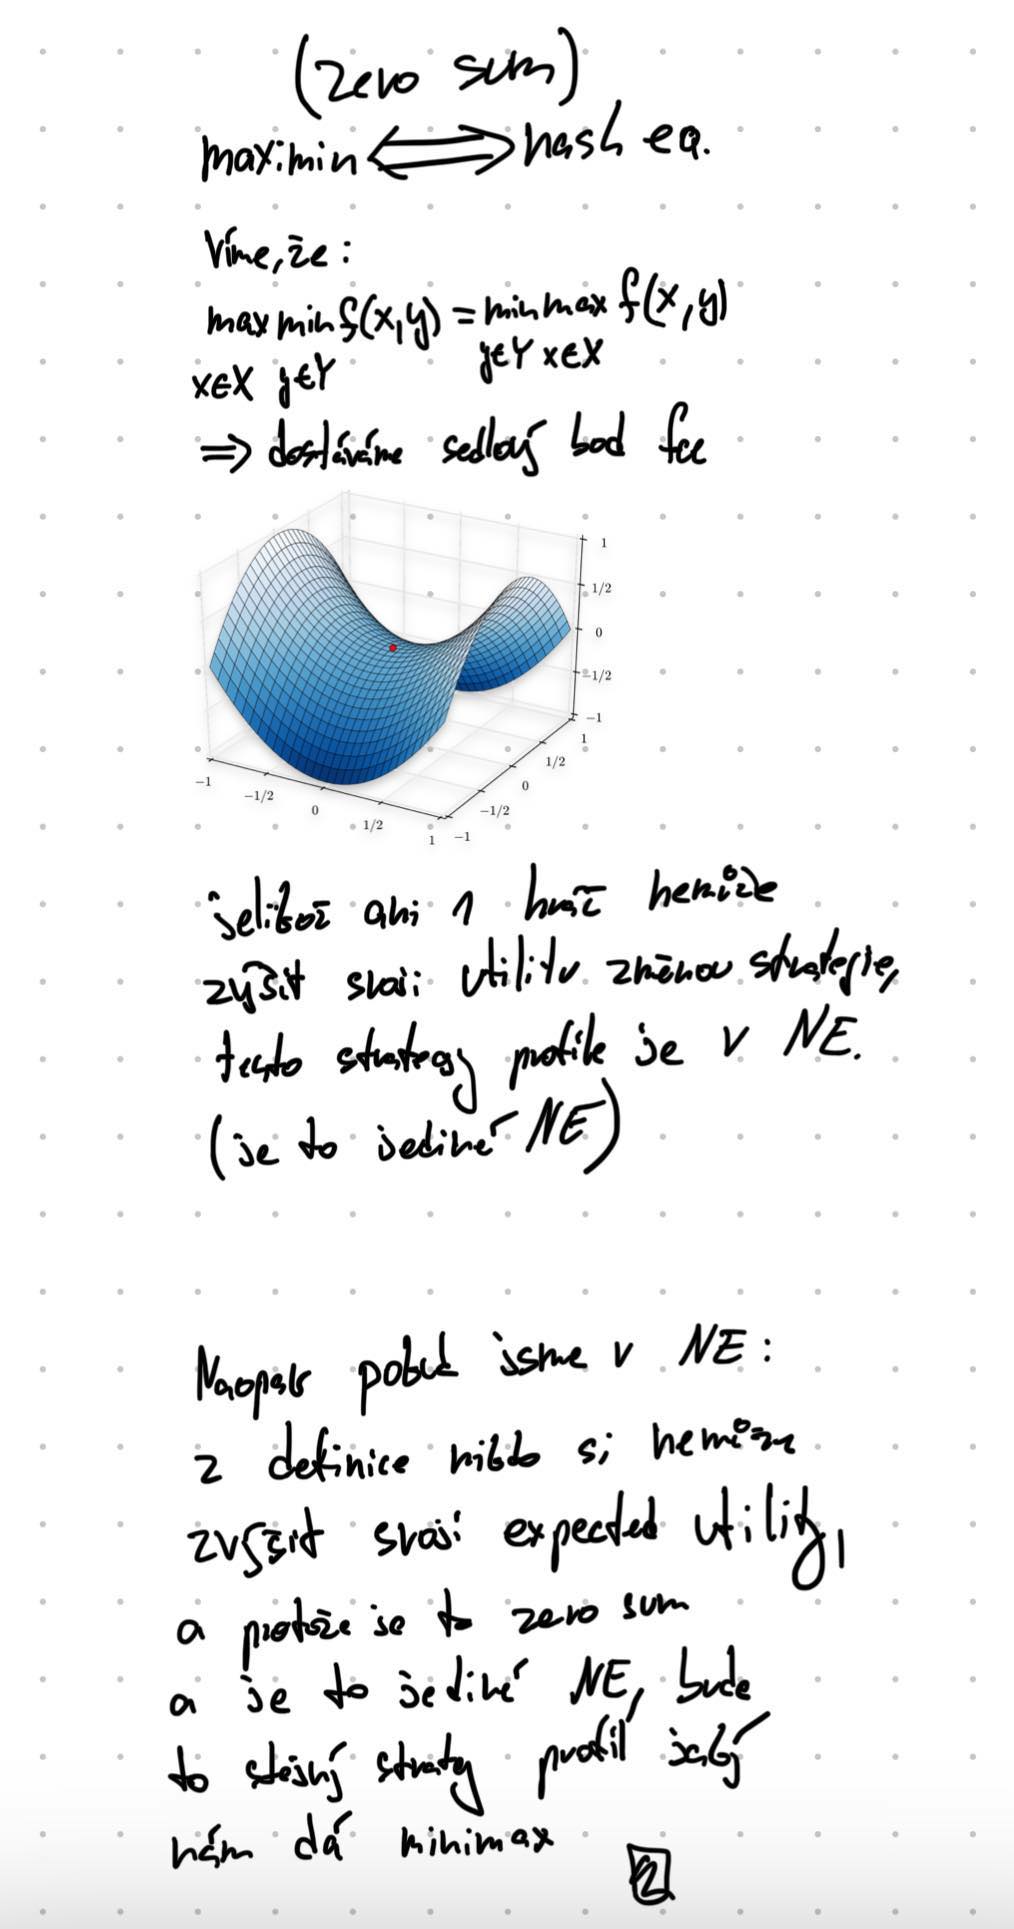 (zero sum)
maximin ⟺ nash eq.
Víme, že:
max min f(x,y) = min max f(x,y)
x∈X y∈Y y∈Y x∈X
⇒ dostáváme sedlový bod fce
1
1/2
0
-1/2
-1
1
1/2
0
-1/2
-1
-1
-1/2
0
1/2
1
jelikož ani 1 hráč nemůže
zvýšit svoji utilitu změnou strategie,
tento strategy profile je v NE.
(je to jediné NE)
Naopak pokud jsme v NE:
z definice nikdo si nemůže
zvýšit svoji expected utility,
a protože je to zero sum
a je to jediné NE, bude
to stejný straty profil jaký
nám dá minimax